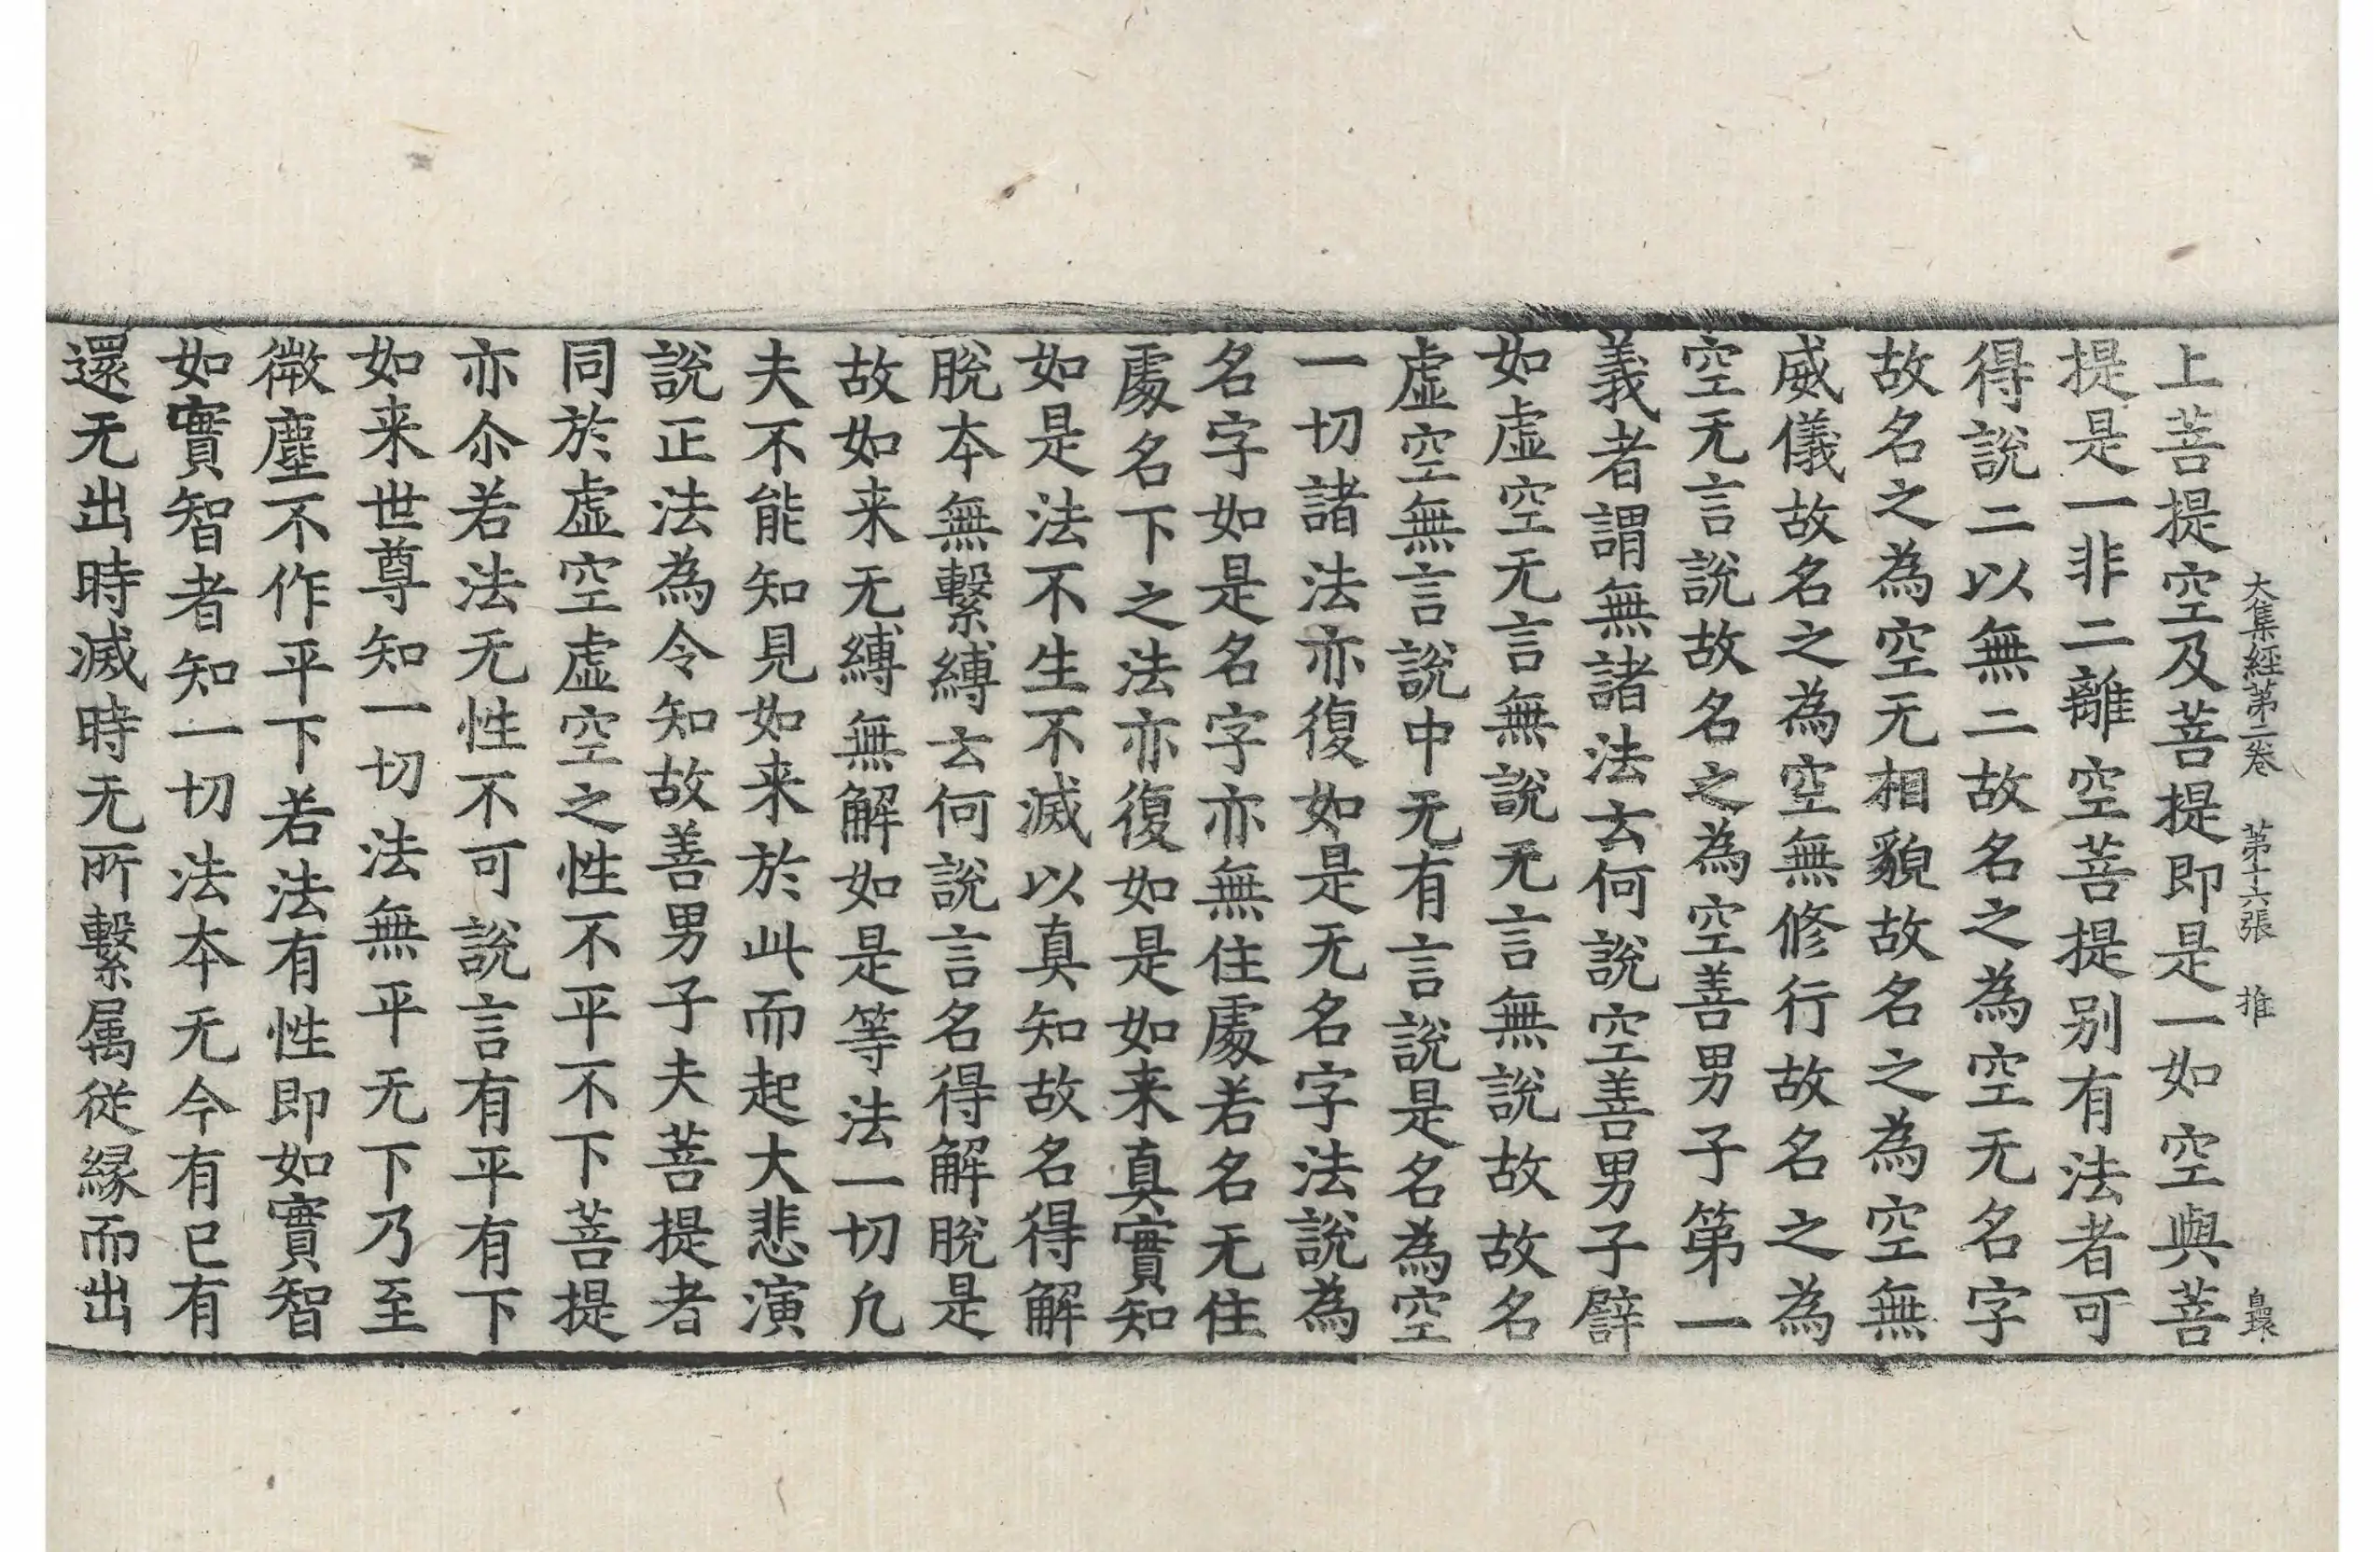 大集經第二卷　第十六張　推
上菩提空及菩提即是一如空與菩
提是一非二離空菩提别有法者可
得說二以無二故名之為空无名字
故名之為空无相貌故名之為空無
威儀故名之為空無修行故名之為
空无言說故名之為空善男子第一
義者謂無諸法云何說空善男子譬
如虛空无言無說无言無說故故名
虛空無言說中无有言說是名為空
一切諸法亦復如是无名字法說為
名字如是名字亦無住處若名无住
處名下之法亦復如是如来真實知
如是法不生不滅以真知故名得解
脫本無繫縛云何說言名得解脫是
故如来无縛無解如是等法一切凢
夫不能知見如来於此而起大悲演
說正法為令知故善男子夫菩提者
同於虛空虛空之性不平不下菩提
亦尒若法无性不可說言有平有下
如来世尊知一切法無平无下乃至
微塵不作平下若法有性即如實智
如實智者知一切法本无今有已有
還无出時滅時无所繫属従縁而出